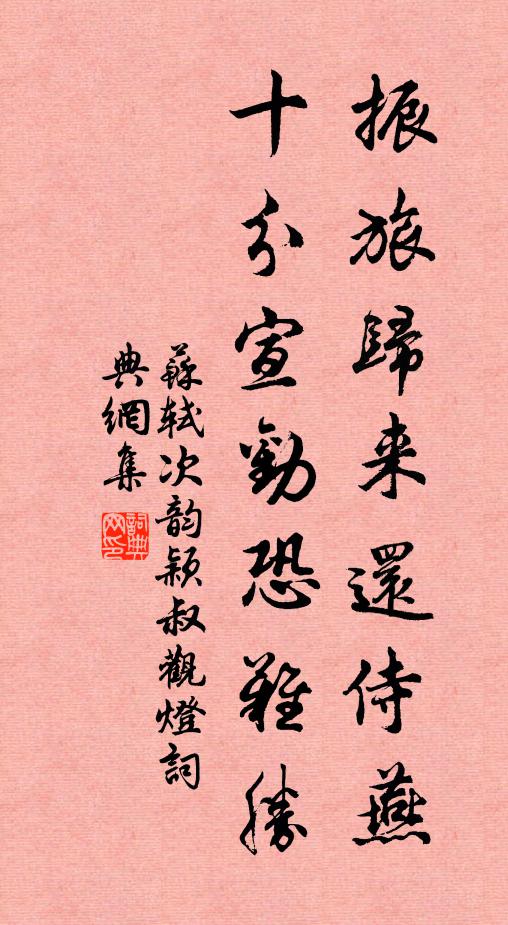 振旅歸来還侍燕
十分宣勸恐難勝
蘇軾次韵穎叔觀燈詞
典網集
詞典網印